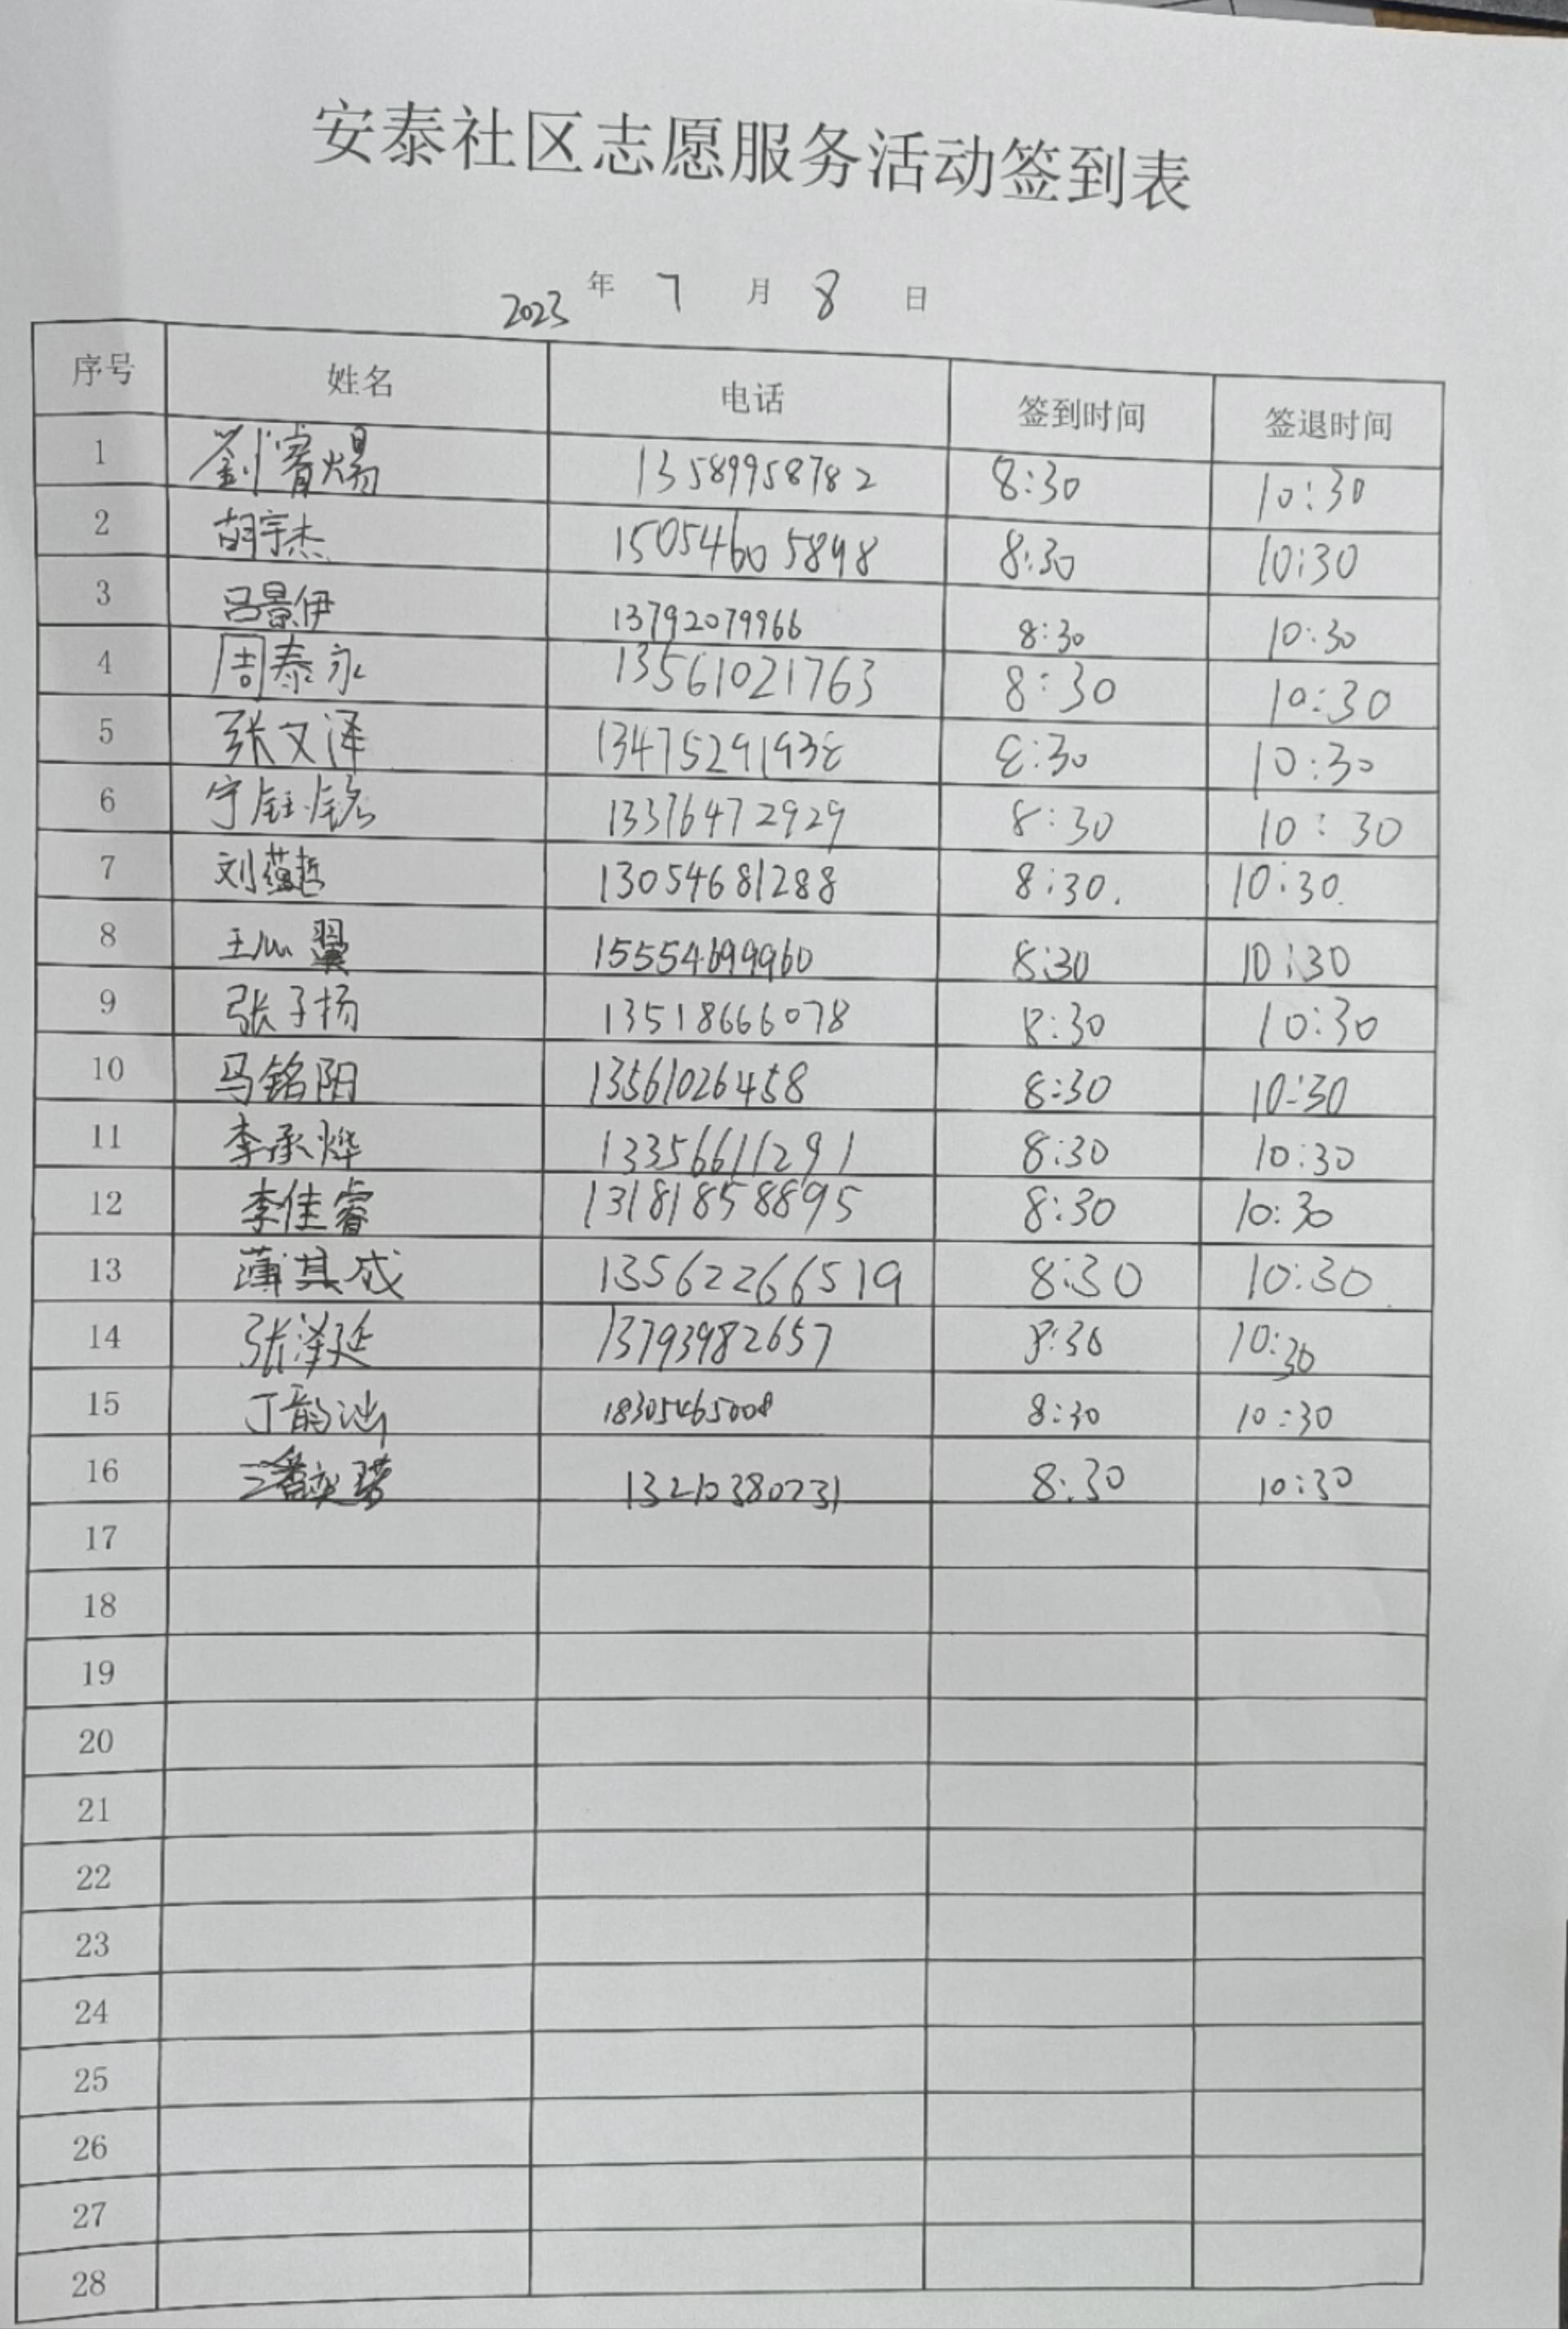 安泰社区志愿服务活动签到表
2023 年 7 月 8 日
序号 姓名 电话 签到时间 签退时间
1 劉睿煬 13589958782 8:30 10:30
2 胡宇杰 15054605898 8:30 10:30
3 吕景伊 13792079966 8:30 10:30
4 周泰永 13561021763 8:30 10:30
5 张文泽 13475291938 8:30 10:30
6 宁钰铭 13376472929 8:30 10:30
7 刘蕴哲 13054681288 8:30. 10:30.
8 王心翼 15554699960 8:30 10:30
9 张子扬 13518666078 8:30 10:30
10 马铭阳 13561026458 8:30 10:30
11 李承烨 13356611291 8:30 10:30
12 李佳睿 13181858895 8:30 10:30
13 薄其成 13562266519 8:30 10:30
14 张泽延 13793982657 8:30 10:30
15 丁韵涵 18305465008 8:30 10:30
16 13210380731 8:30 10:30
17
18
19
20
21
22
23
24
25
26
27
28